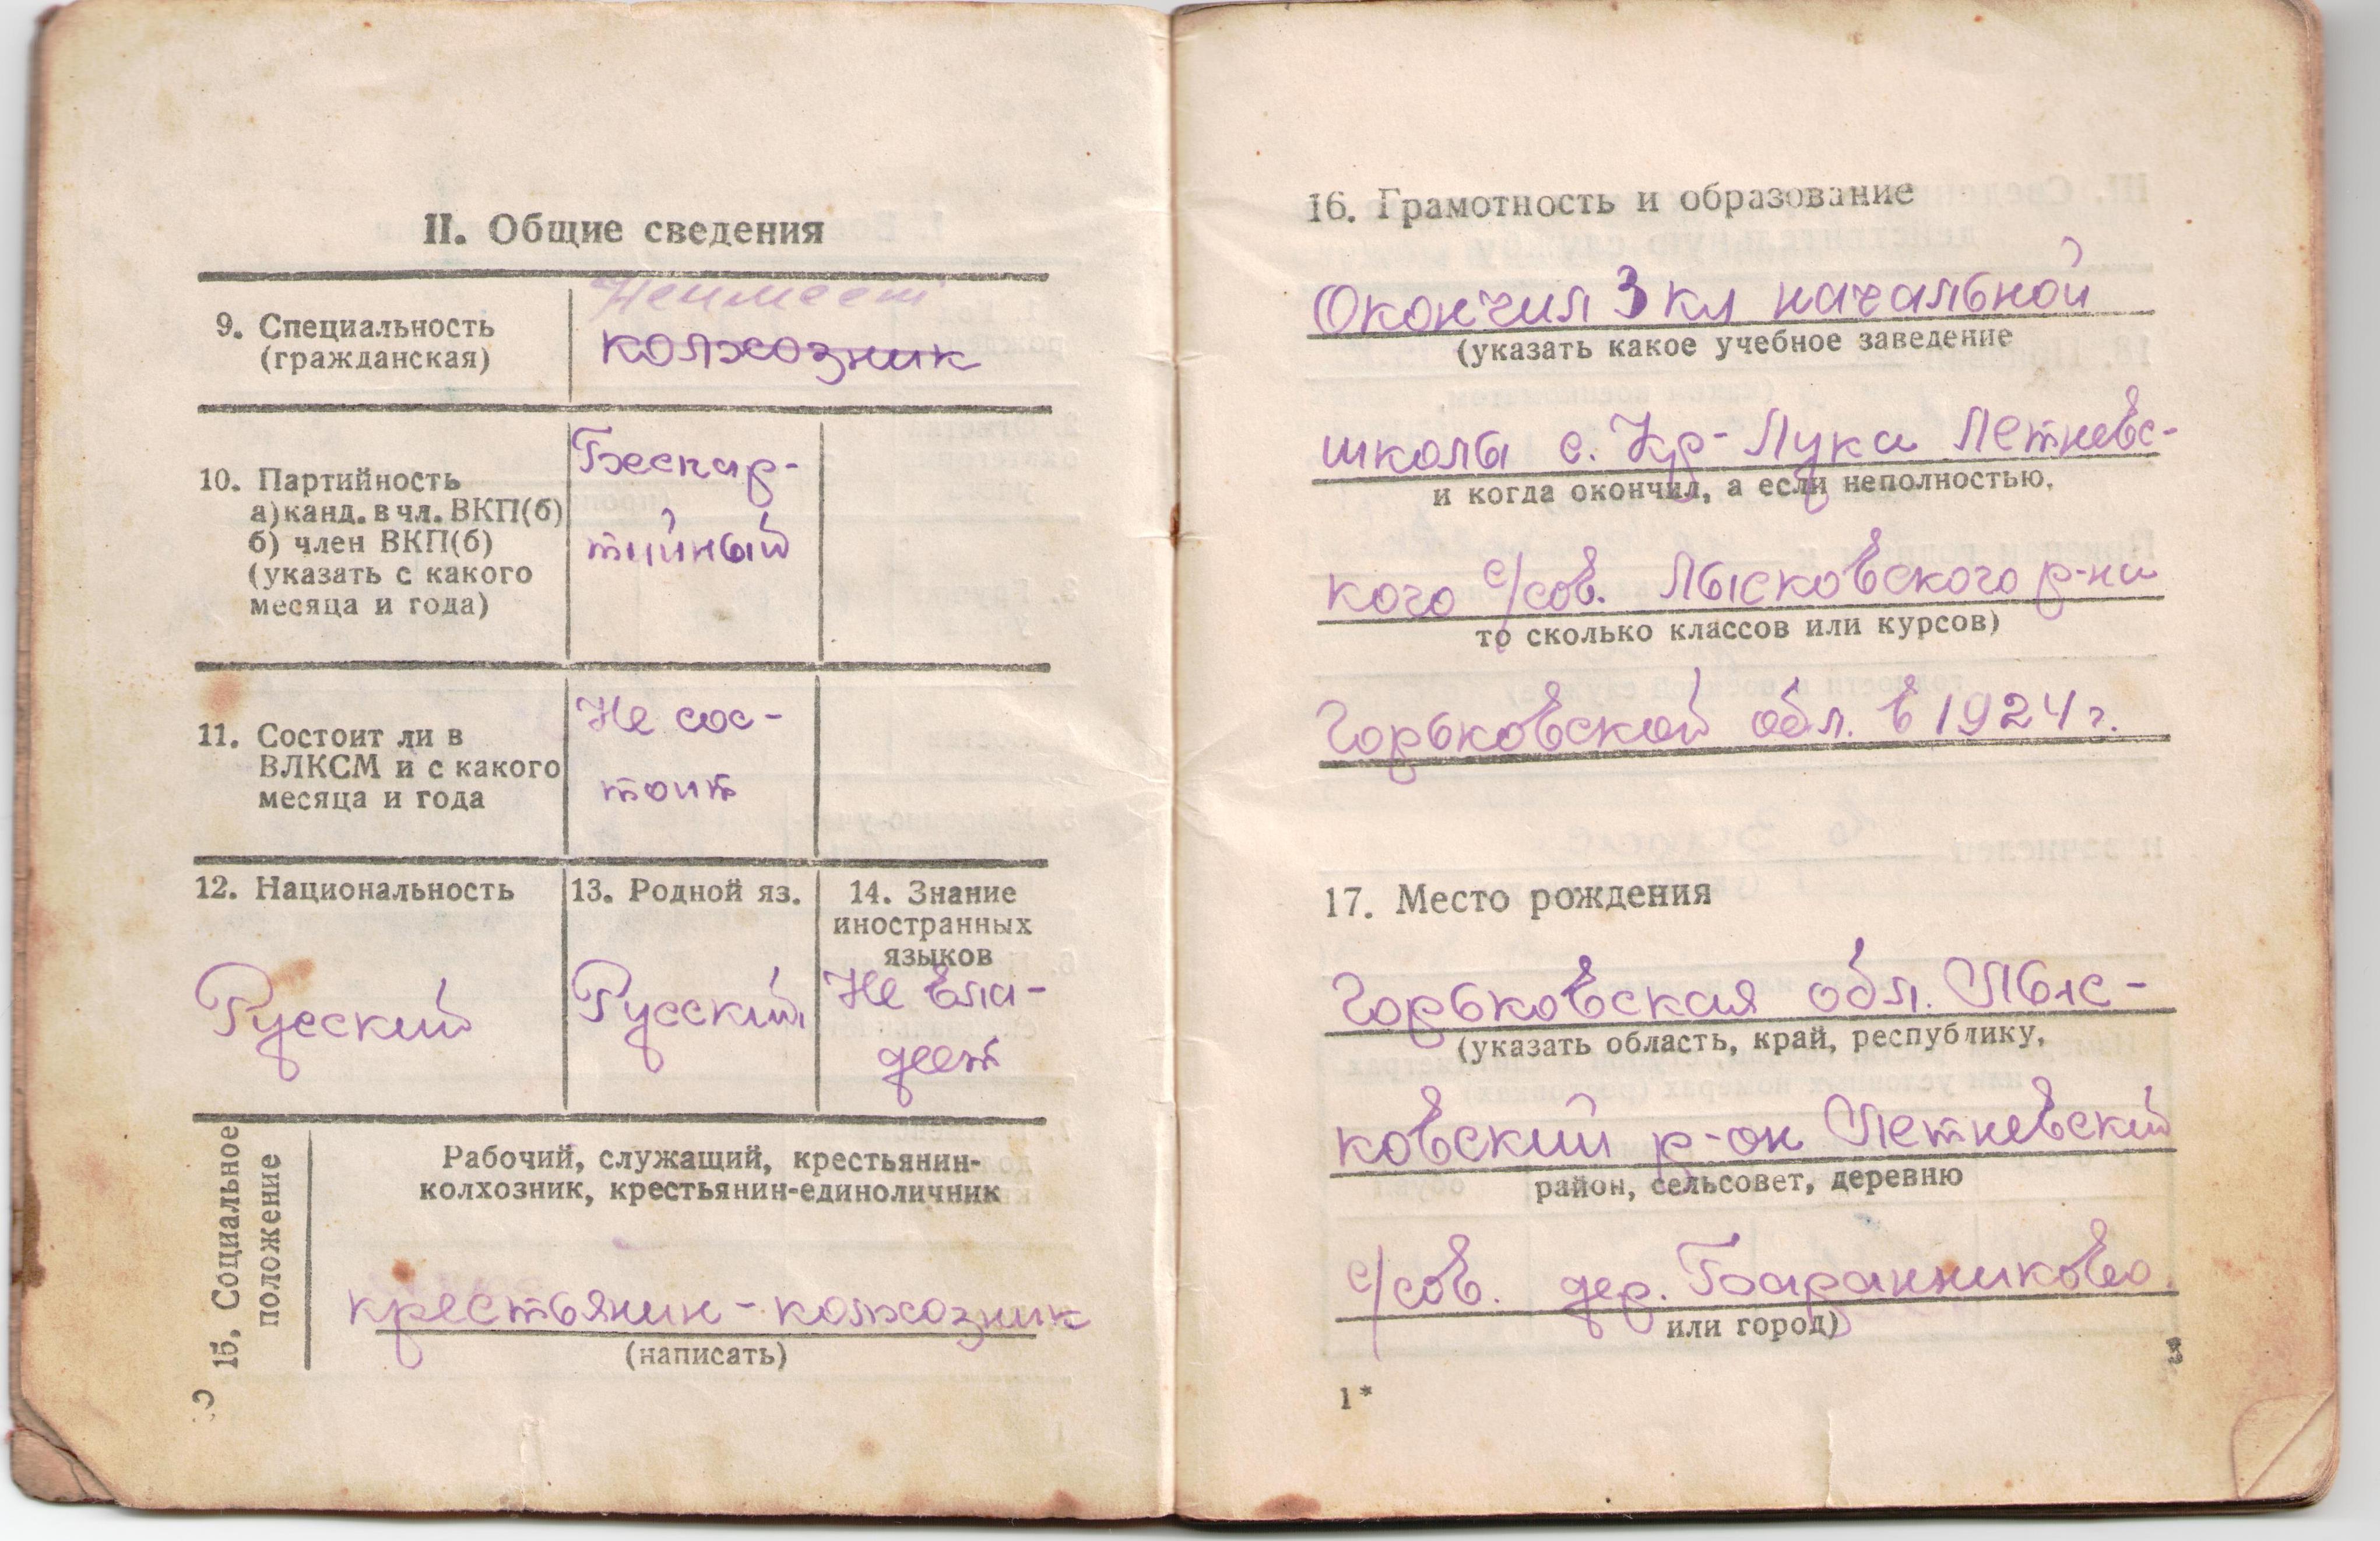 II. Общие сведения
9. Специальность
(гражданская)
Не имеет
колхозник
10. Партийность
а) канд. в чл. ВКП(б)
б) член ВКП(б)
(указать с какого
месяца и года)
Беспар-
тийный
11. Состоит ли в
ВЛКСМ и с какого
месяца и года
Не сос-
тоит
12. Национальность
Русский
13. Родной яз.
Русский
14. Знание
иностранных
языков
Не вла-
деет
15. Социальное
положение
Рабочий, служащий, крестьянин-
колхозник, крестьянин-единоличник
крестьянин-колхозник
(написать)
16. Грамотность и образование
Окончил 3 кл начальной
(указать какое учебное заведение
школы с. Кр-Лука Летневс-
и когда окончил, а если неполностью,
кого с/сов. Лысковского р-на
то сколько классов или курсов)
Горьковской обл. в 1924 г.
17. Место рождения
Горьковская обл. Лыс-
(указать область, край, республику,
ковский р-он Летневский
район, сельсовет, деревню
с/сов. дер. Баранниково.
или город)
1*
3